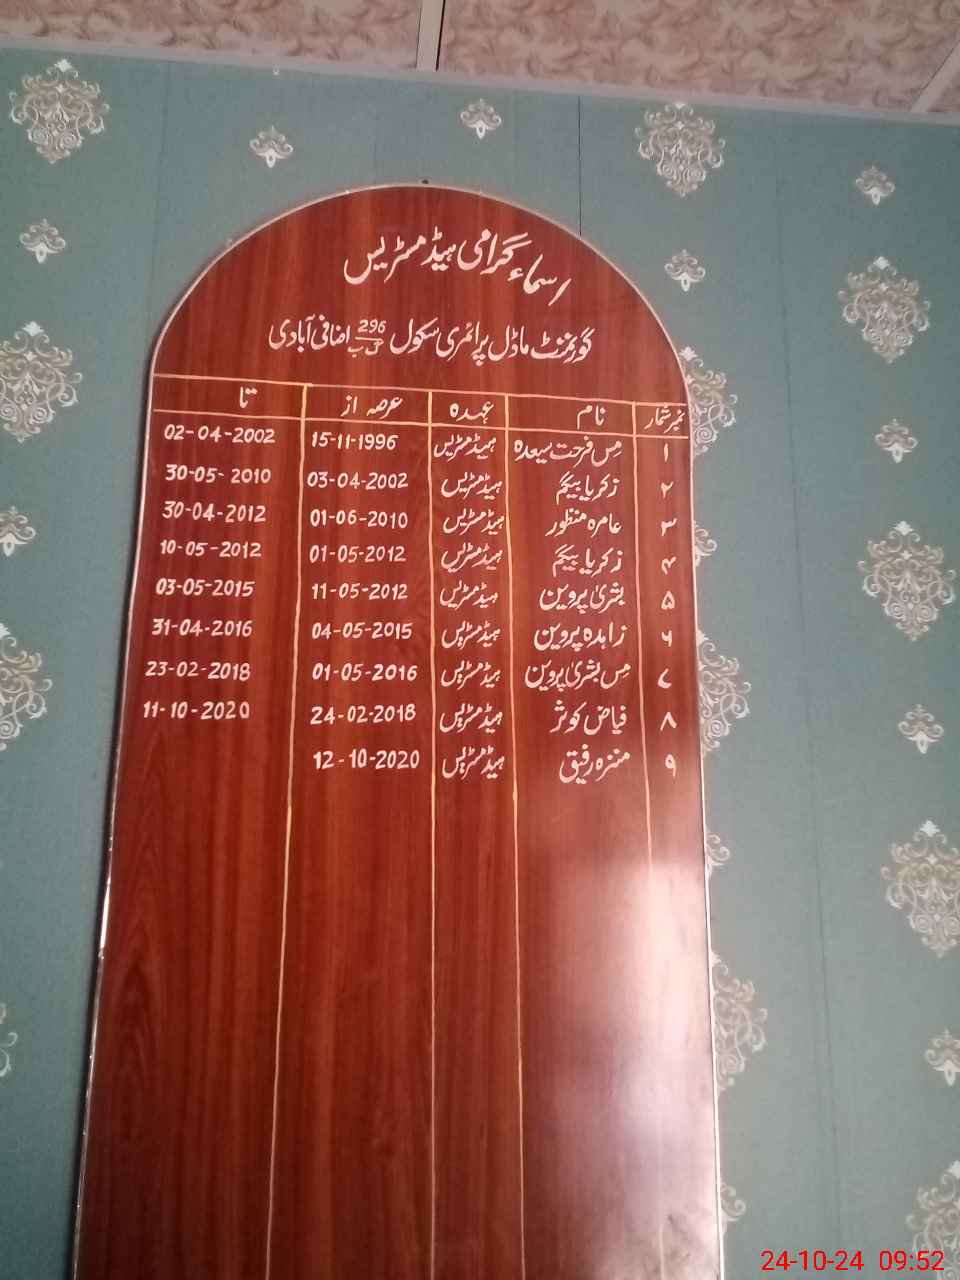 اسماء گرامی ہیڈ مسٹریس
گورنمنٹ ماڈل پرائمری سکول 296 گ ب اضافی آبادی
نمبر شمار نام عہدہ عرصہ از تا
۱ مس فرحت سعیدہ ہیڈ مسٹریس 15-11-1996 02-04-2002
۲ زکریا بیگم ہیڈ مسٹریس 03-04-2002 30-05-2010
۳ عامرہ منظور ہیڈ مسٹریس 01-06-2010 30-04-2012
۴ زکریا بیگم ہیڈ مسٹریس 01-05-2012 10-05-2012
۵ بشریٰ پروین ہیڈ مسٹریس 11-05-2012 03-05-2015
۶ زاہدہ پروین ہیڈ مسٹریس 04-05-2015 31-04-2016
۷ مس بشریٰ پروین ہیڈ مسٹریس 01-05-2016 23-02-2018
۸ فیاض کوثر ہیڈ مسٹریس 24-02-2018 11-10-2020
۹ منزہ رفیق ہیڈ مسٹریس 12-10-2020
24-10-24 09:52